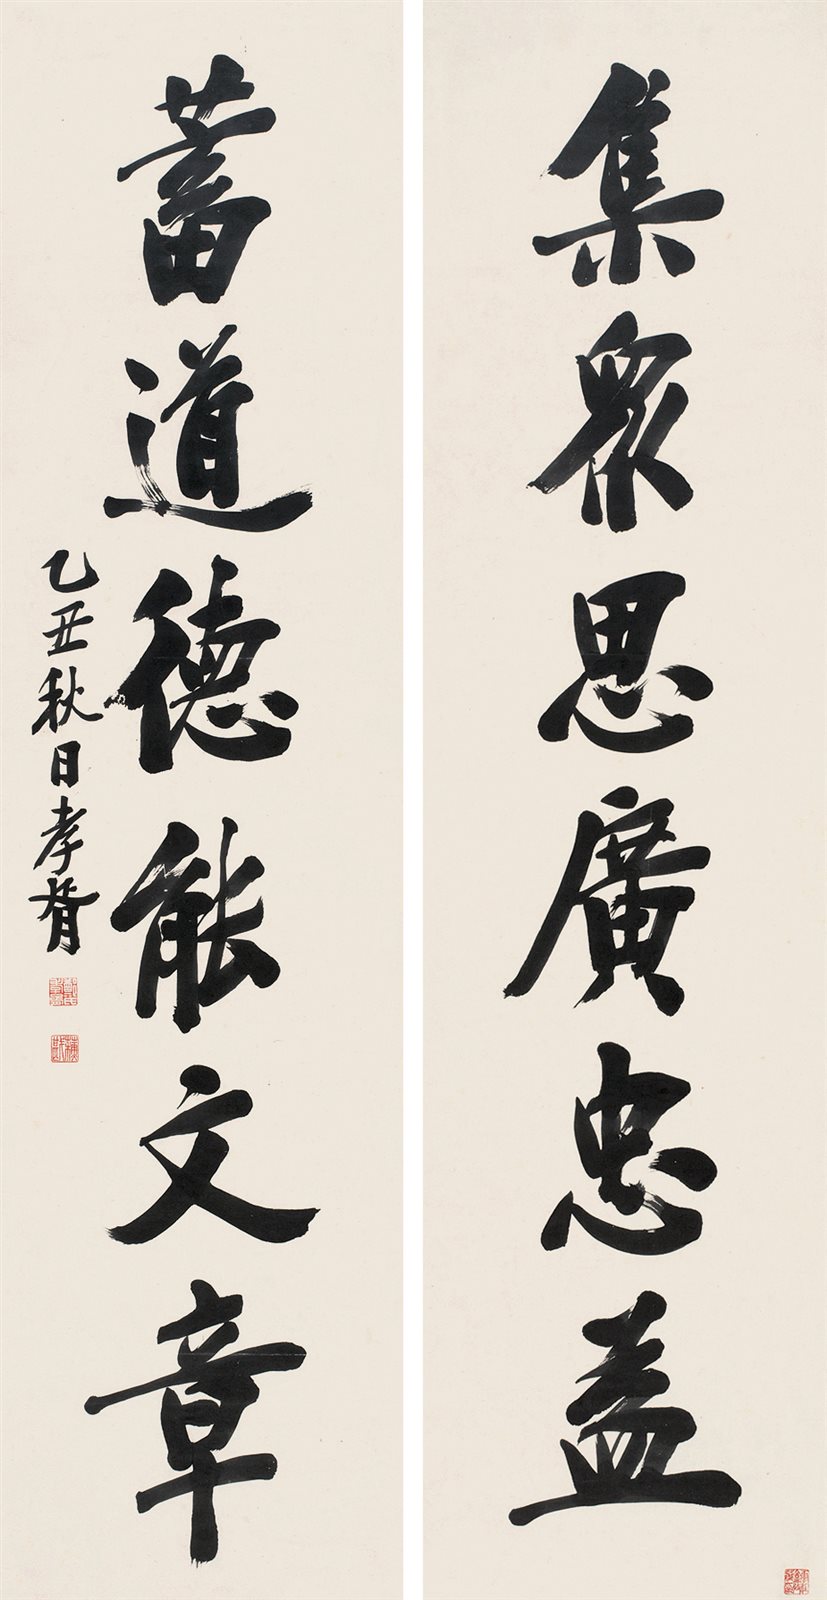 集眾思廣忠益
蓄道德能文章
乙丑秋日孝胥